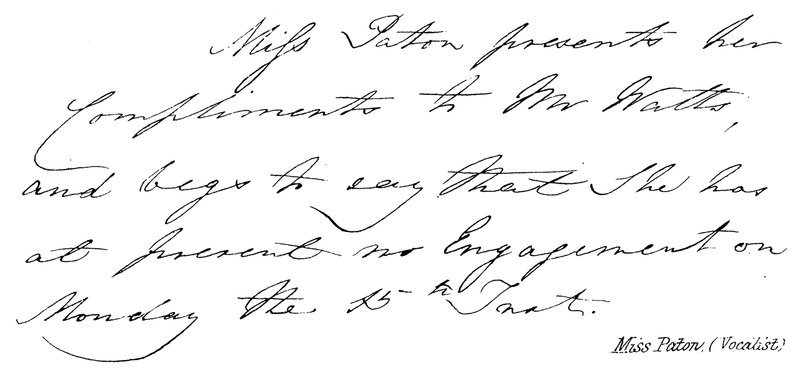 Miſs Paton presents her
Compliments to Mr Watts,
and begs to say that She has
at present no Engagement on
Monday the 15th Inst.
Miss Paton. (Vocalist)